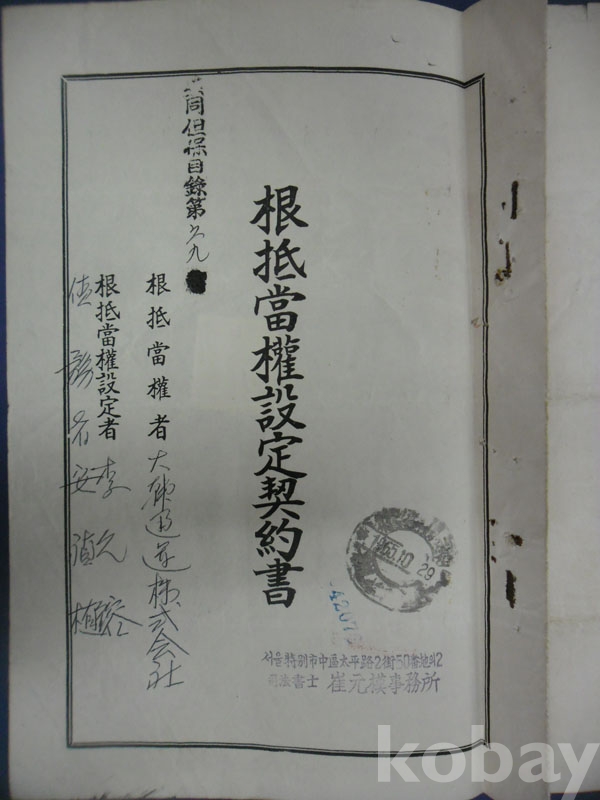 根抵當權設定契約書
同但保目錄第六九
根抵當權者 大 運送株式会社
根抵當權設定者 李
債務者 安
1963.10.29
42075
서울特別市中區太平路2街50番地의2
司法書士 崔元模事務所
kobay